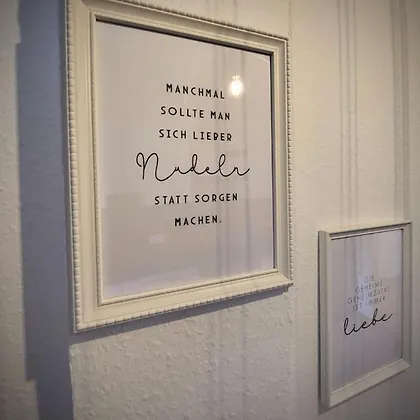 MANCHMAL
SOLLTE MAN
SICH LIEBER
Nudeln
STATT SORGEN
MACHEN.
DIE
GEHEIME
GEHEIMZUTAT
IST IMMER
liebe